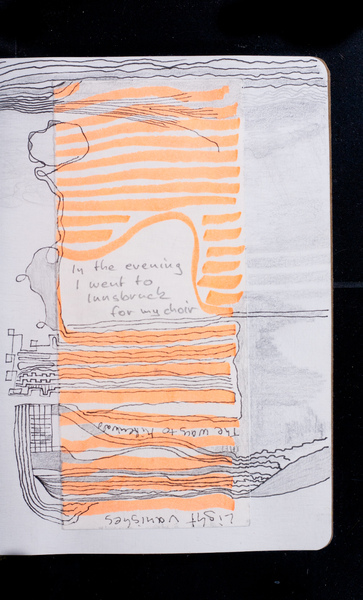 In the evening
I went to
Innsbruck
for my choir
The way to
Light vanishes